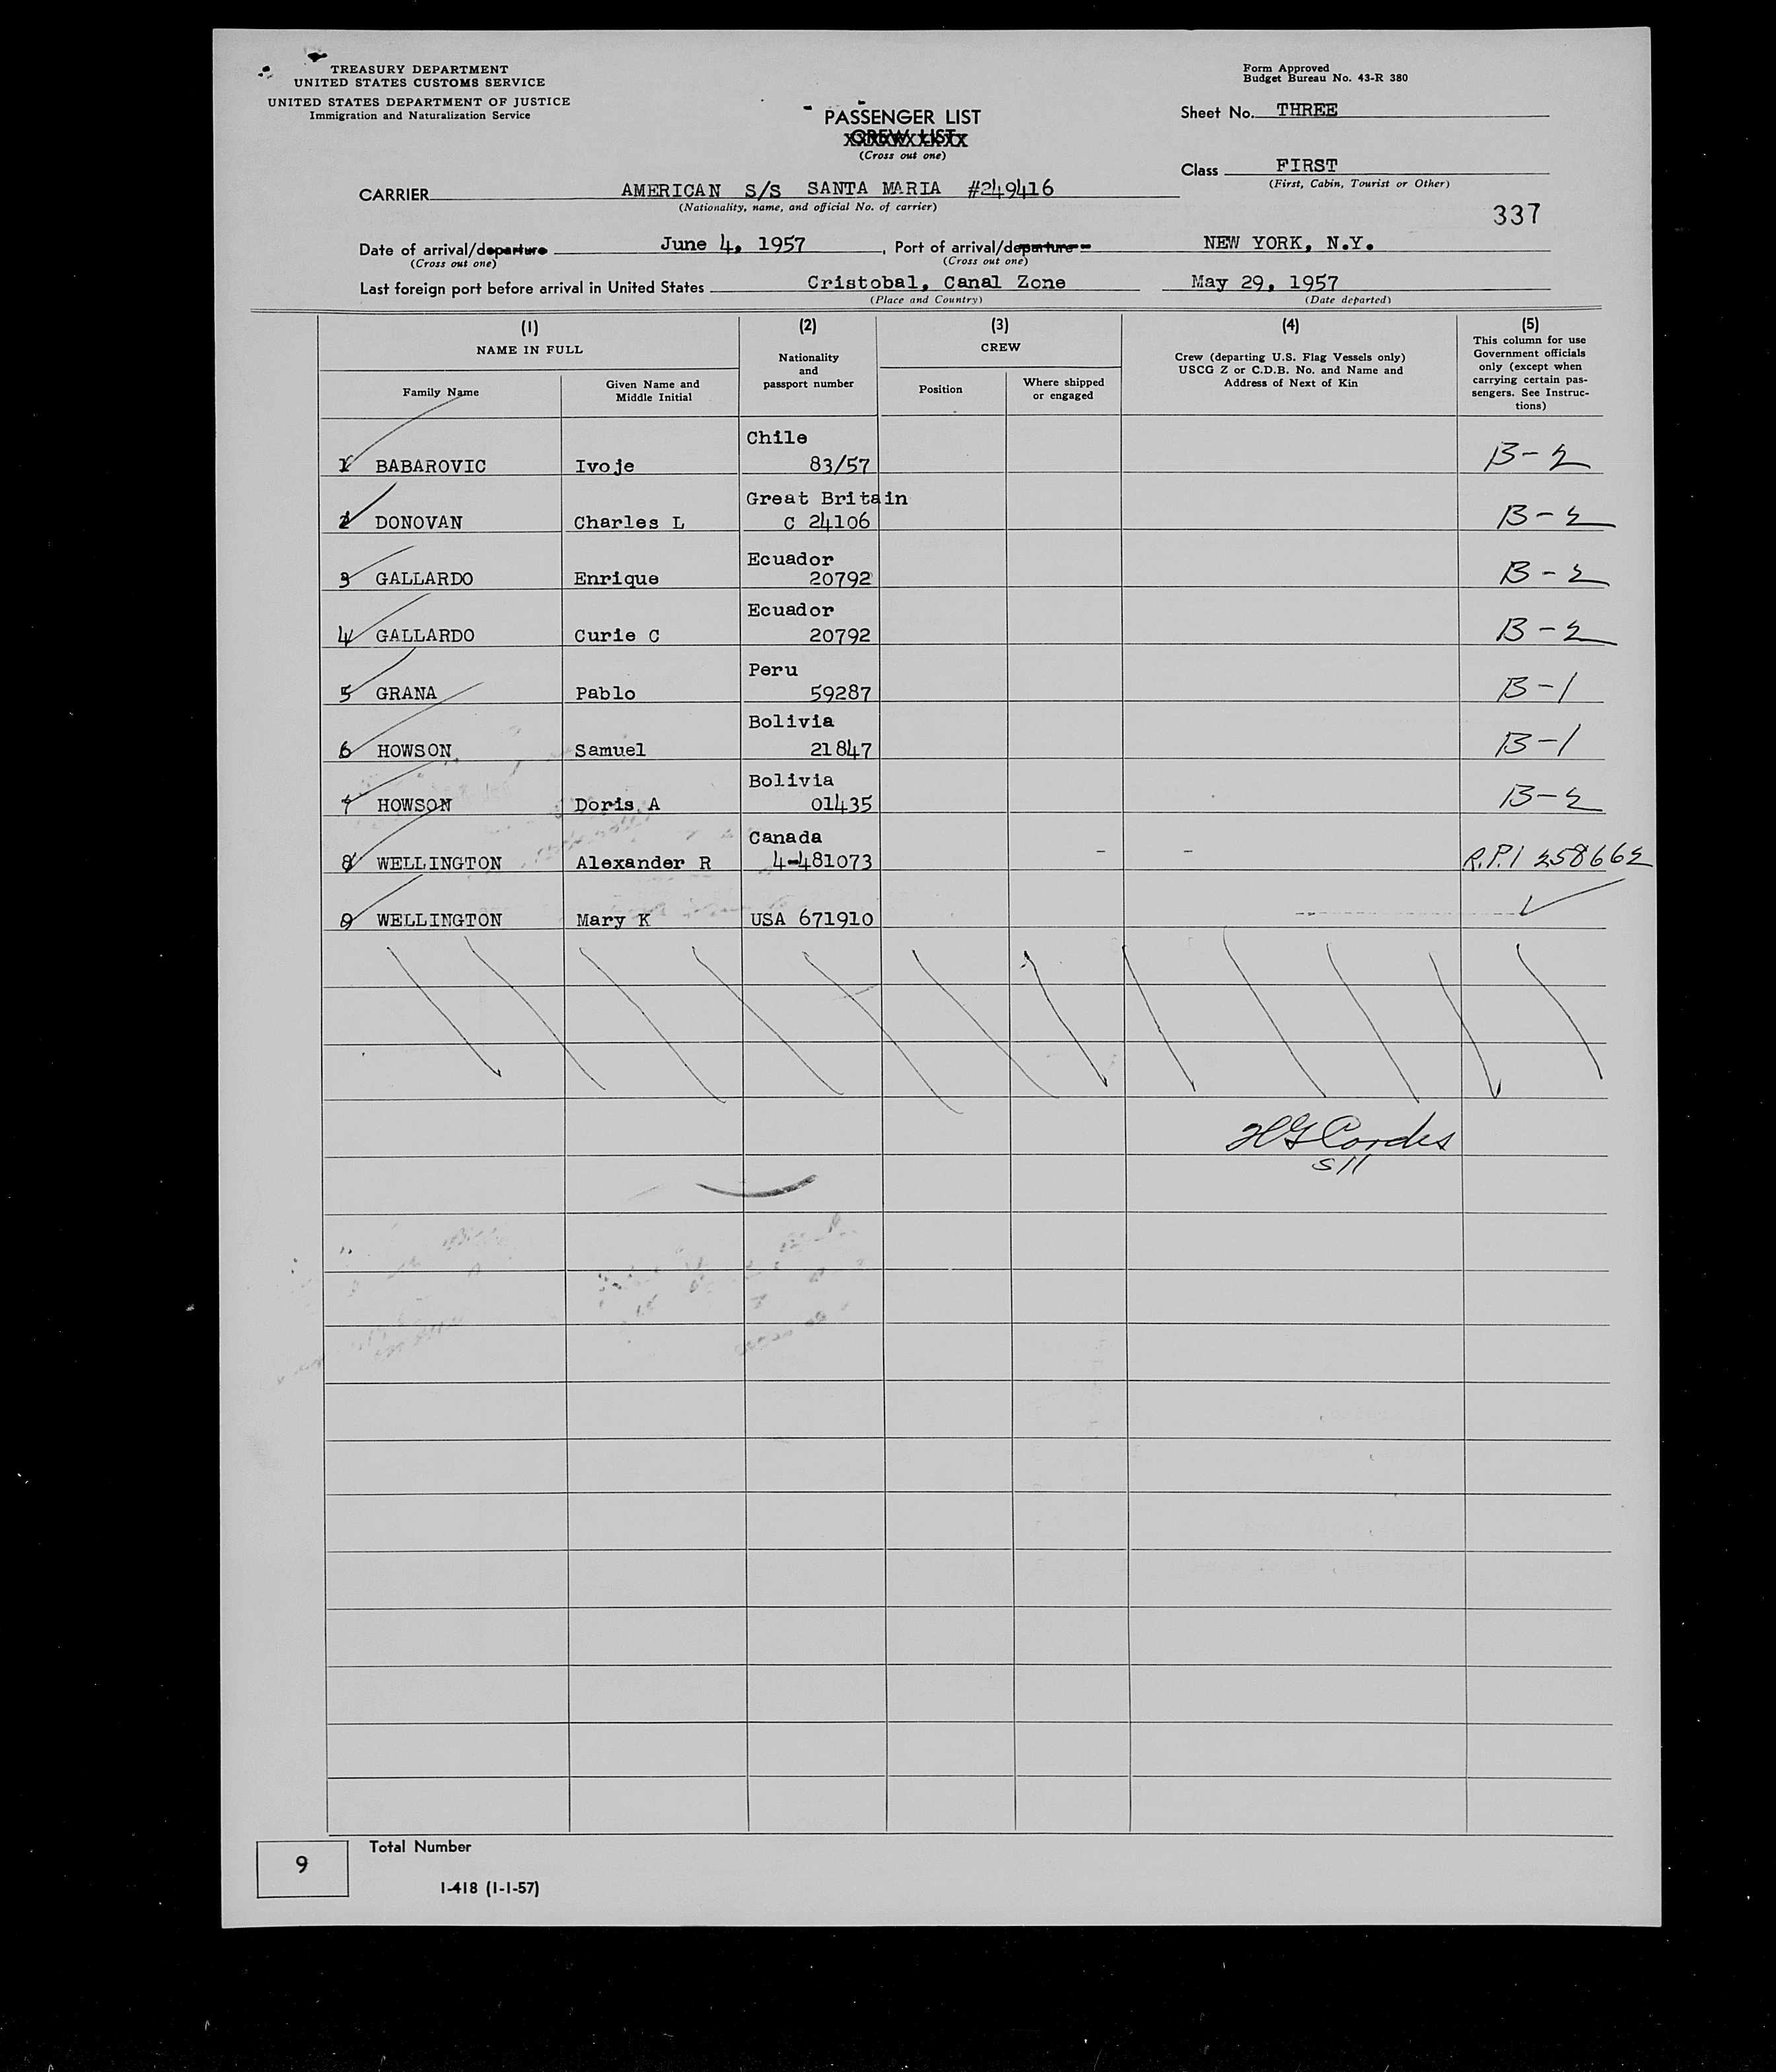 TREASURY DEPARTMENT
UNITED STATES CUSTOMS SERVICE
UNITED STATES DEPARTMENT OF JUSTICE
Immigration and Naturalization Service
Form Approved
Budget Bureau No. 43-R 380
PASSENGER LIST
CREW LIST
(Cross out one)
Sheet No. THREE
Class FIRST
(First, Cabin, Tourist or Other)
CARRIER AMERICAN S/S SANTA MARIA #249416
(Nationality, name, and official No. of carrier)
337
Date of arrival/departure June 4, 1957, Port of arrival/departure NEW YORK, N.Y.
(Cross out one) (Cross out one)
Last foreign port before arrival in United States Cristobal, Canal Zone May 29, 1957
(Place and Country) (Date departed)
(1) (2) (3) (4) (5)
NAME IN FULL
Family Name
Given Name and
Middle Initial
Nationality
and
passport number
CREW
Position
Where shipped
or engaged
Crew (departing U.S. Flag Vessels only)
USCG Z or C.D.B. No. and Name and
Address of Next of Kin
This column for use
Government officials
only (except when
carrying certain pas-
sengers. See Instruc-
tions)
Chile
1 BABAROVIC Ivoje 83/57 B-2
Great Britain
2 DONOVAN Charles L C 24106 B-2
Ecuador
3 GALLARDO Enrique 20792 B-2
Ecuador
4 GALLARDO Curie C 20792 B-2
Peru
5 GRANA Pablo 59287 B-1
Bolivia
6 HOWSON Samuel 21847 B-1
Bolivia
7 HOWSON Doris A 01435 B-2
Canada
8 WELLINGTON Alexander R 4-481073 R.P.1 258662
9 WELLINGTON Mary K USA 671910
HG Cordes
SII
9 Total Number
I-418 (1-1-57)